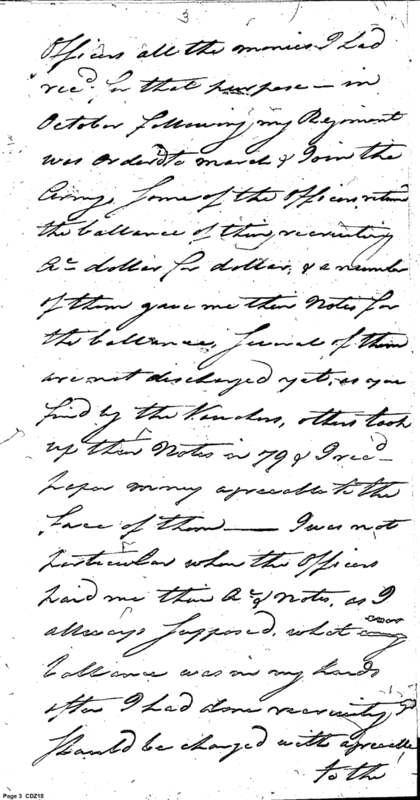 3
Officers all the monies I had
recd. for that purpose — in
October following my Regiment
was orderd to march & Join the
Army, Some of the Officers return
the ballance of their recruiting
Ac. dollar for dollar, & a number
of them gave me their Notes for
the ballances, Several of them
are not discharged yet, as you
find by the Vouchers, others took
up their Notes in 79 & I recd.
paper money agreeable to the
face of them — I was not
particular when the Officers
paid me their Ac. & Notes, as I
allways Supposed, what ever
ballance was in my hands
after I had done recruiting
Should be charged with agreeable
to the
Page 3 CDZ18